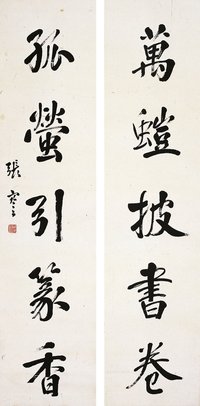 萬螘披書卷
孤螢引篆香
張謇